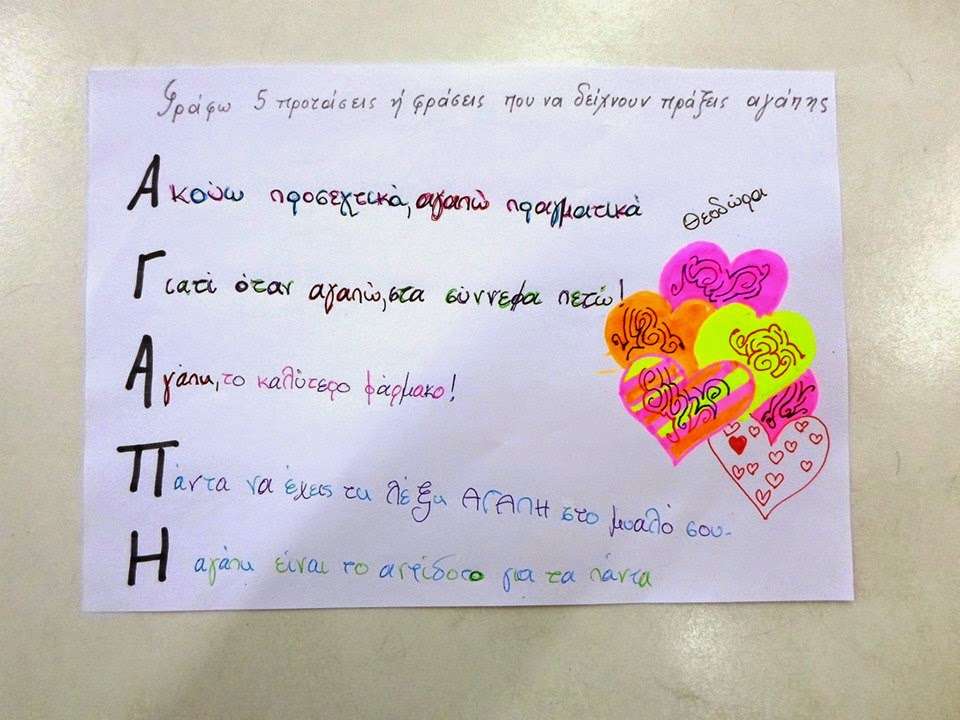 Γράφω 5 προτάσεις ή φράσεις που να δείχνουν πράξεις αγάπης
Ακούω προσεχτικά, αγαπώ πραγματικά
Θεοδώρα
Γιατί όταν αγαπώ, στα σύννεφα πετώ!
Αγάπη, το καλύτερο φάρμακο!
Πάντα να έχεις τη λέξη ΑΓΑΠΗ στο μυαλό σου.
Η αγάπη είναι το αντίδοτο για τα πάντα